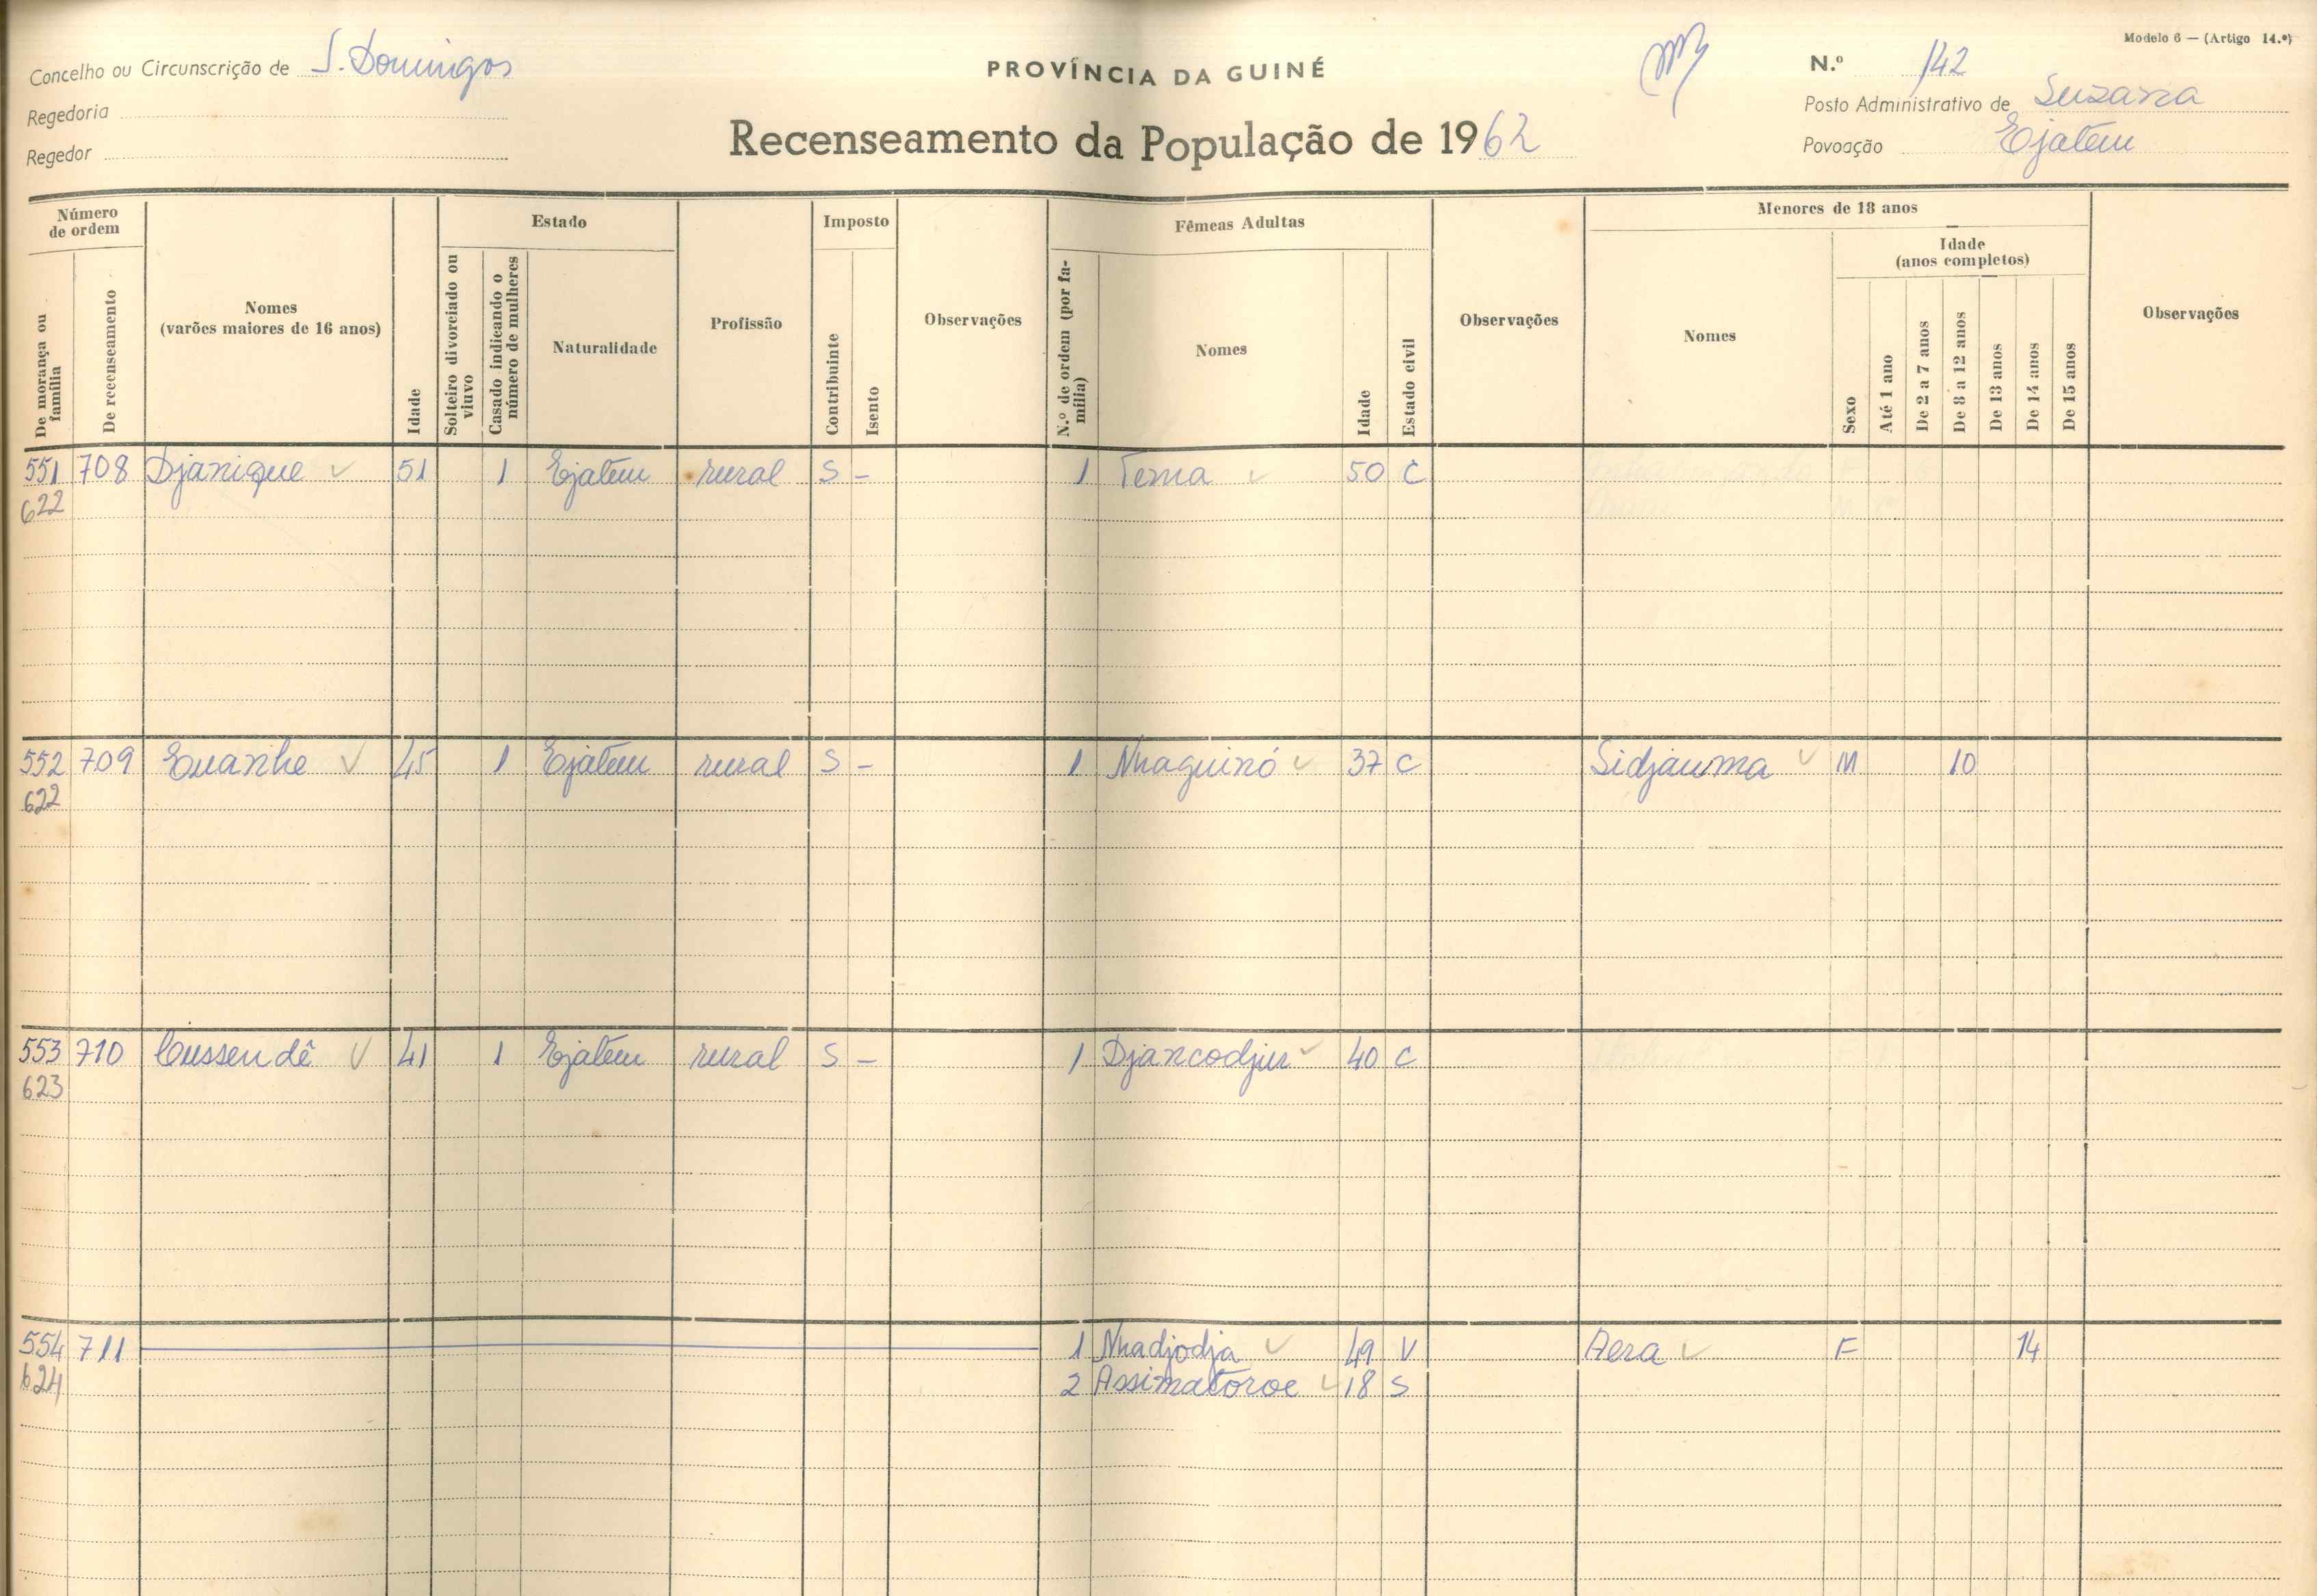 Modelo 6 — (Artigo 14.º)
Concelho ou Circunscrição de S. Domingos
PROVÍNCIA DA GUINÉ
N.º 142
Regedoria
Posto Administrativo de Suzana
Regedor
Recenseamento da População de 1962
Povoação Ejatem
Número de ordem
De morança ou família
De recenseamento
Nomes
(varões maiores de 16 anos)
Idade
Estado
Solteiro divorciado ou viuvo
Casado indicando o número de mulheres
Naturalidade
Profissão
Imposto
Contribuinte
Isento
Observações
Fêmeas Adultas
N.º de ordem (por família)
Nomes
Idade
Estado civil
Observações
Menores de 18 anos
Nomes
Sexo
Idade
(anos completos)
Até 1 ano
De 2 a 7 anos
De 8 a 12 anos
De 13 anos
De 14 anos
De 15 anos
Observações
551 708 Djanique 51 1 Ejatem rural S - 1 Tema 50 C
622
552 709 Euanhe 45 1 Ejatem rural S - 1 Nhaguinó 37 C Sidjauma M 10
622
553 710 Cussendê 41 1 Ejatem rural S - 1 Djancodjur 40 C
623
554 711 1 Nhadjodja 49 V Aera F 14
624 2 Assimatoroe 18 S